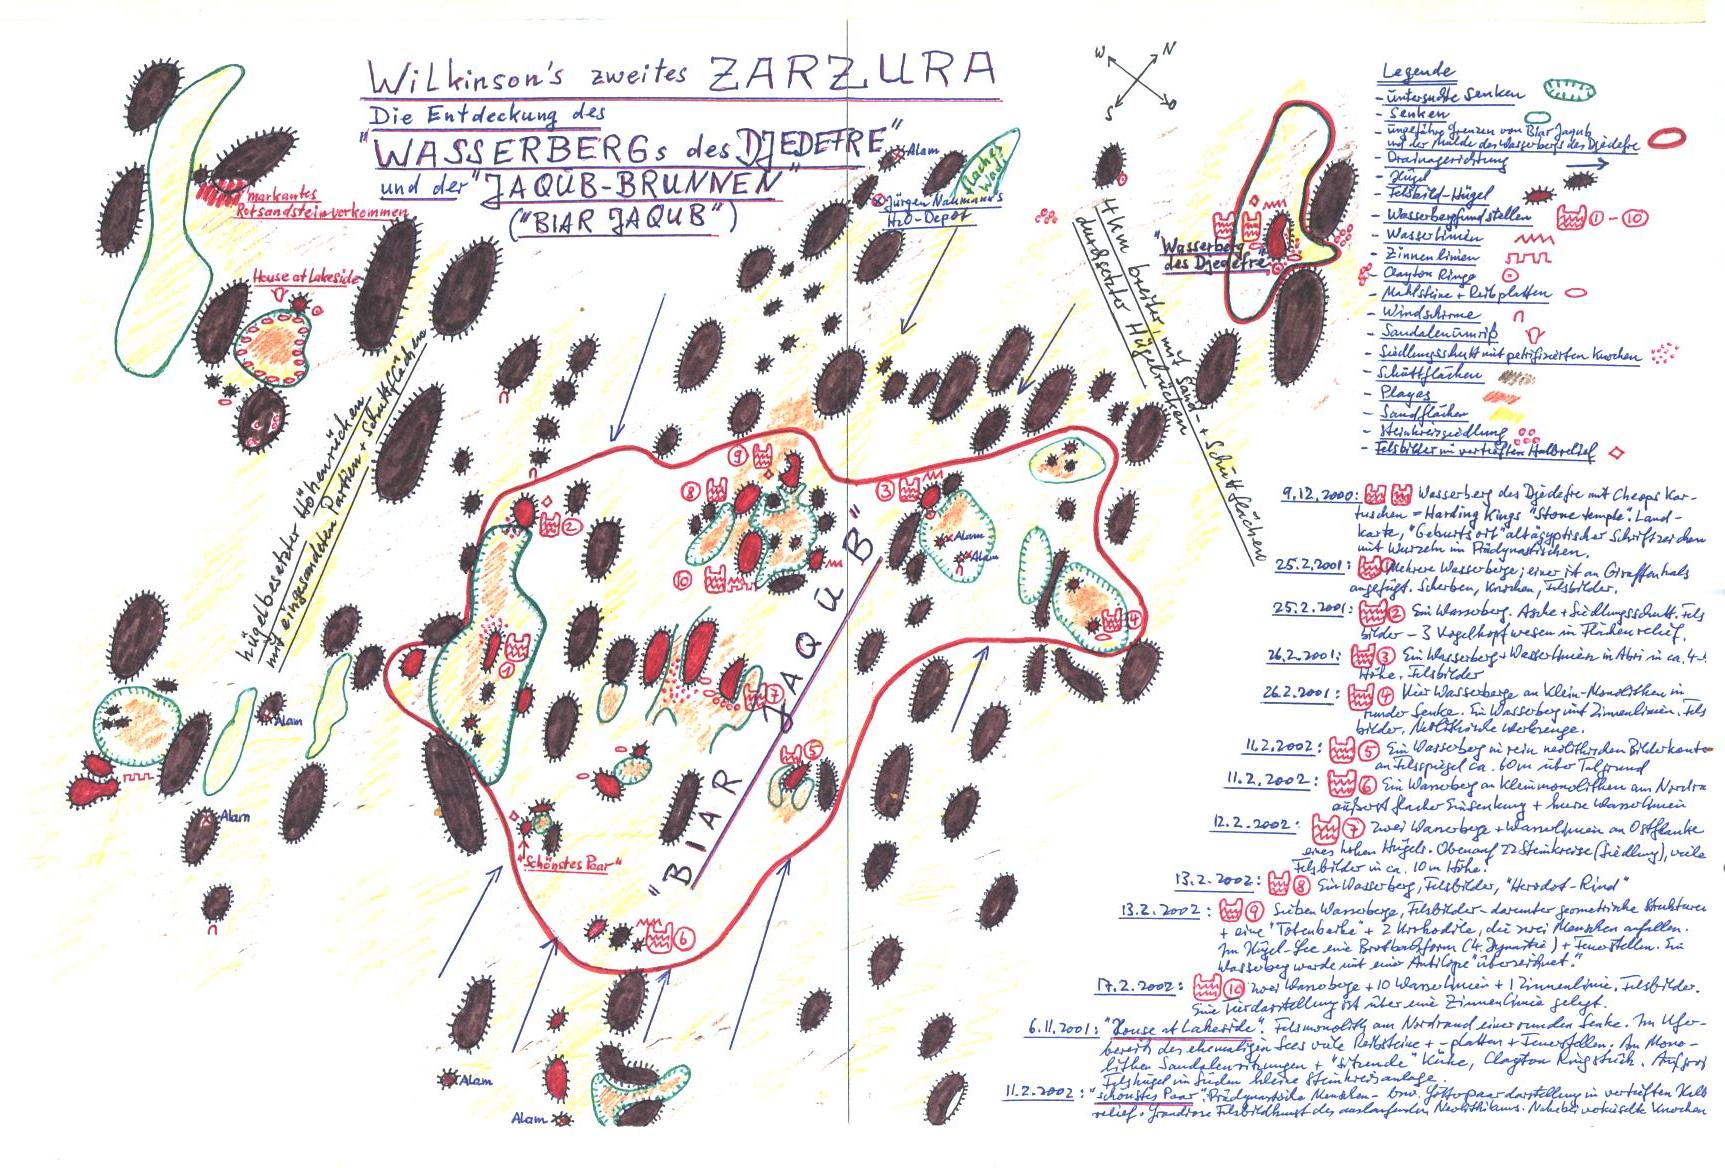 Wilkinson's zweites ZARZURA
Die Entdeckung des
"WASSERBERGs des DJEDEFRE"
und der "JAQUB-BRUNNEN"
("BIAR JAQUB")
W N
S O
Alam
flaches
Wadi
Jürgen Naumann's
H2O-Depot
markantes
Rotsandsteinvorkommen
House at Lakeside
hügelbesetzter Höhenrücken
mit eingesandeten Partien + Schuttflächen
4 km breiter, mit Sand- + Schuttflächen
durchsetzter Hügelrücken
"Wasserberg
des Djedefre"
9
8
3
2
10
Alam
Alam
4
1
7
5
6
"BIAR JAQUB"
Alam
Alam
"Schönstes Paar"
Alam
Alam
Legende
- untersuchte Senken
- Senken
- ungefähre Grenzen von Biar Jaqub
und der Mulde des Wasserbergs des Djedefre
- Drainagerichtung
- Hügel
- Felsbild-Hügel
- Wasserbergfundstellen 1 - 10
- Wasserlinien
- Zinnenlinien
- Clayton Ringe
- Mahlsteine + Reibplatten
- Windschirme
- Sandalenumriß
- Siedlungsschutt mit petrifizierten Knochen
- Schuttflächen
- Playas
- Sandflächen
- Steinkreissiedlung
- Felsbilder im vertieften Halbrelief
9.12.2000: Wasserberg des Djedefre mit Cheops Kar-
tuschen = Harding Kings "Stone temple". Land-
karte, "Geburtsort" altägyptischer Schriftzeichen
mit Wurzeln im Prädynastischen.
25.2.2001: 1 Mehrere Wasserberge; einer ist an Giraffenhals
angefügt. Scherben, Knochen, Felsbilder.
25.2.2001: 2 Ein Wasserberg. Asche + Siedlungsschutt. Fels
bilder - 3 Vogelkopfwesen in Flächenrelief.
26.2.2001: 3 Ein Wasserberg + Wasserlinien in Abri in ca. 4
Höhe. Felsbilder
26.2.2001: 4 Vier Wasserberge an Klein-Monolithen in
runder Senke. Ein Wasserberg mit Zinnenlinien. Fels
bilder, Neolithische Werkzeuge.
11.2.2002: 5 Ein Wasserberg in rein neolithischen Bilderkont
an Felsspiegel ca. 60m über Talgrund
11.2.2002: 6 Ein Wasserberg an Kleinmonolithen am Nordra
äußerst flacher Einsenkung + kurze Wasserlinien
12.2.2002: 7 zwei Wasserberge + Wasserlinien an Ostflanke
eines hohen Hügels. Obenauf 22 Steinkreise (Siedlung), viele
Felsbilder in ca. 10m Höhe.
13.2.2002: 8 Ein Wasserberg, Felsbilder, "Herodot-Rind"
13.2.2002: 9 Sieben Wasserberge, Felsbilder - darunter geometrische Strukturen
+ eine "Totenbarke" + 2 Krokodile, die zwei Menschen anfallen.
Im Hügel-Lee eine Brotbackform (4. Dynastie) + Feuerstellen. Ein
Wasserberg wurde mit einer Antilope "überzeichnet."
17.2.2002: 10 zwei Wasserberge + 10 Wasserlinien + 1 Zinnenlinie, Felsbilder.
Eine Tierdarstellung ist über eine Zinnenlinie gelegt.
6.11.2001: "House at Lakeside". Felsmonolith am Nordrand einer runden Senke. Im Ufer-
bereich des ehemaligen Sees viele Reibsteine + -platten + Feuerstellen. Am Mono-
lithen Sandalenritzungen + "sitzende" Kühe, Clayton Ringstück. Auf
Felshügel im Süden kleine Steinkreisanlage.
11.2.2002: "schönstes Paar". Prädynastische Menschen- bzw. Götterpaardarstellung in vertieften Halb
relief. Grandiose Felsbildkunst des auslaufenden Neolithikums. Nahebei verkieselte Knochen